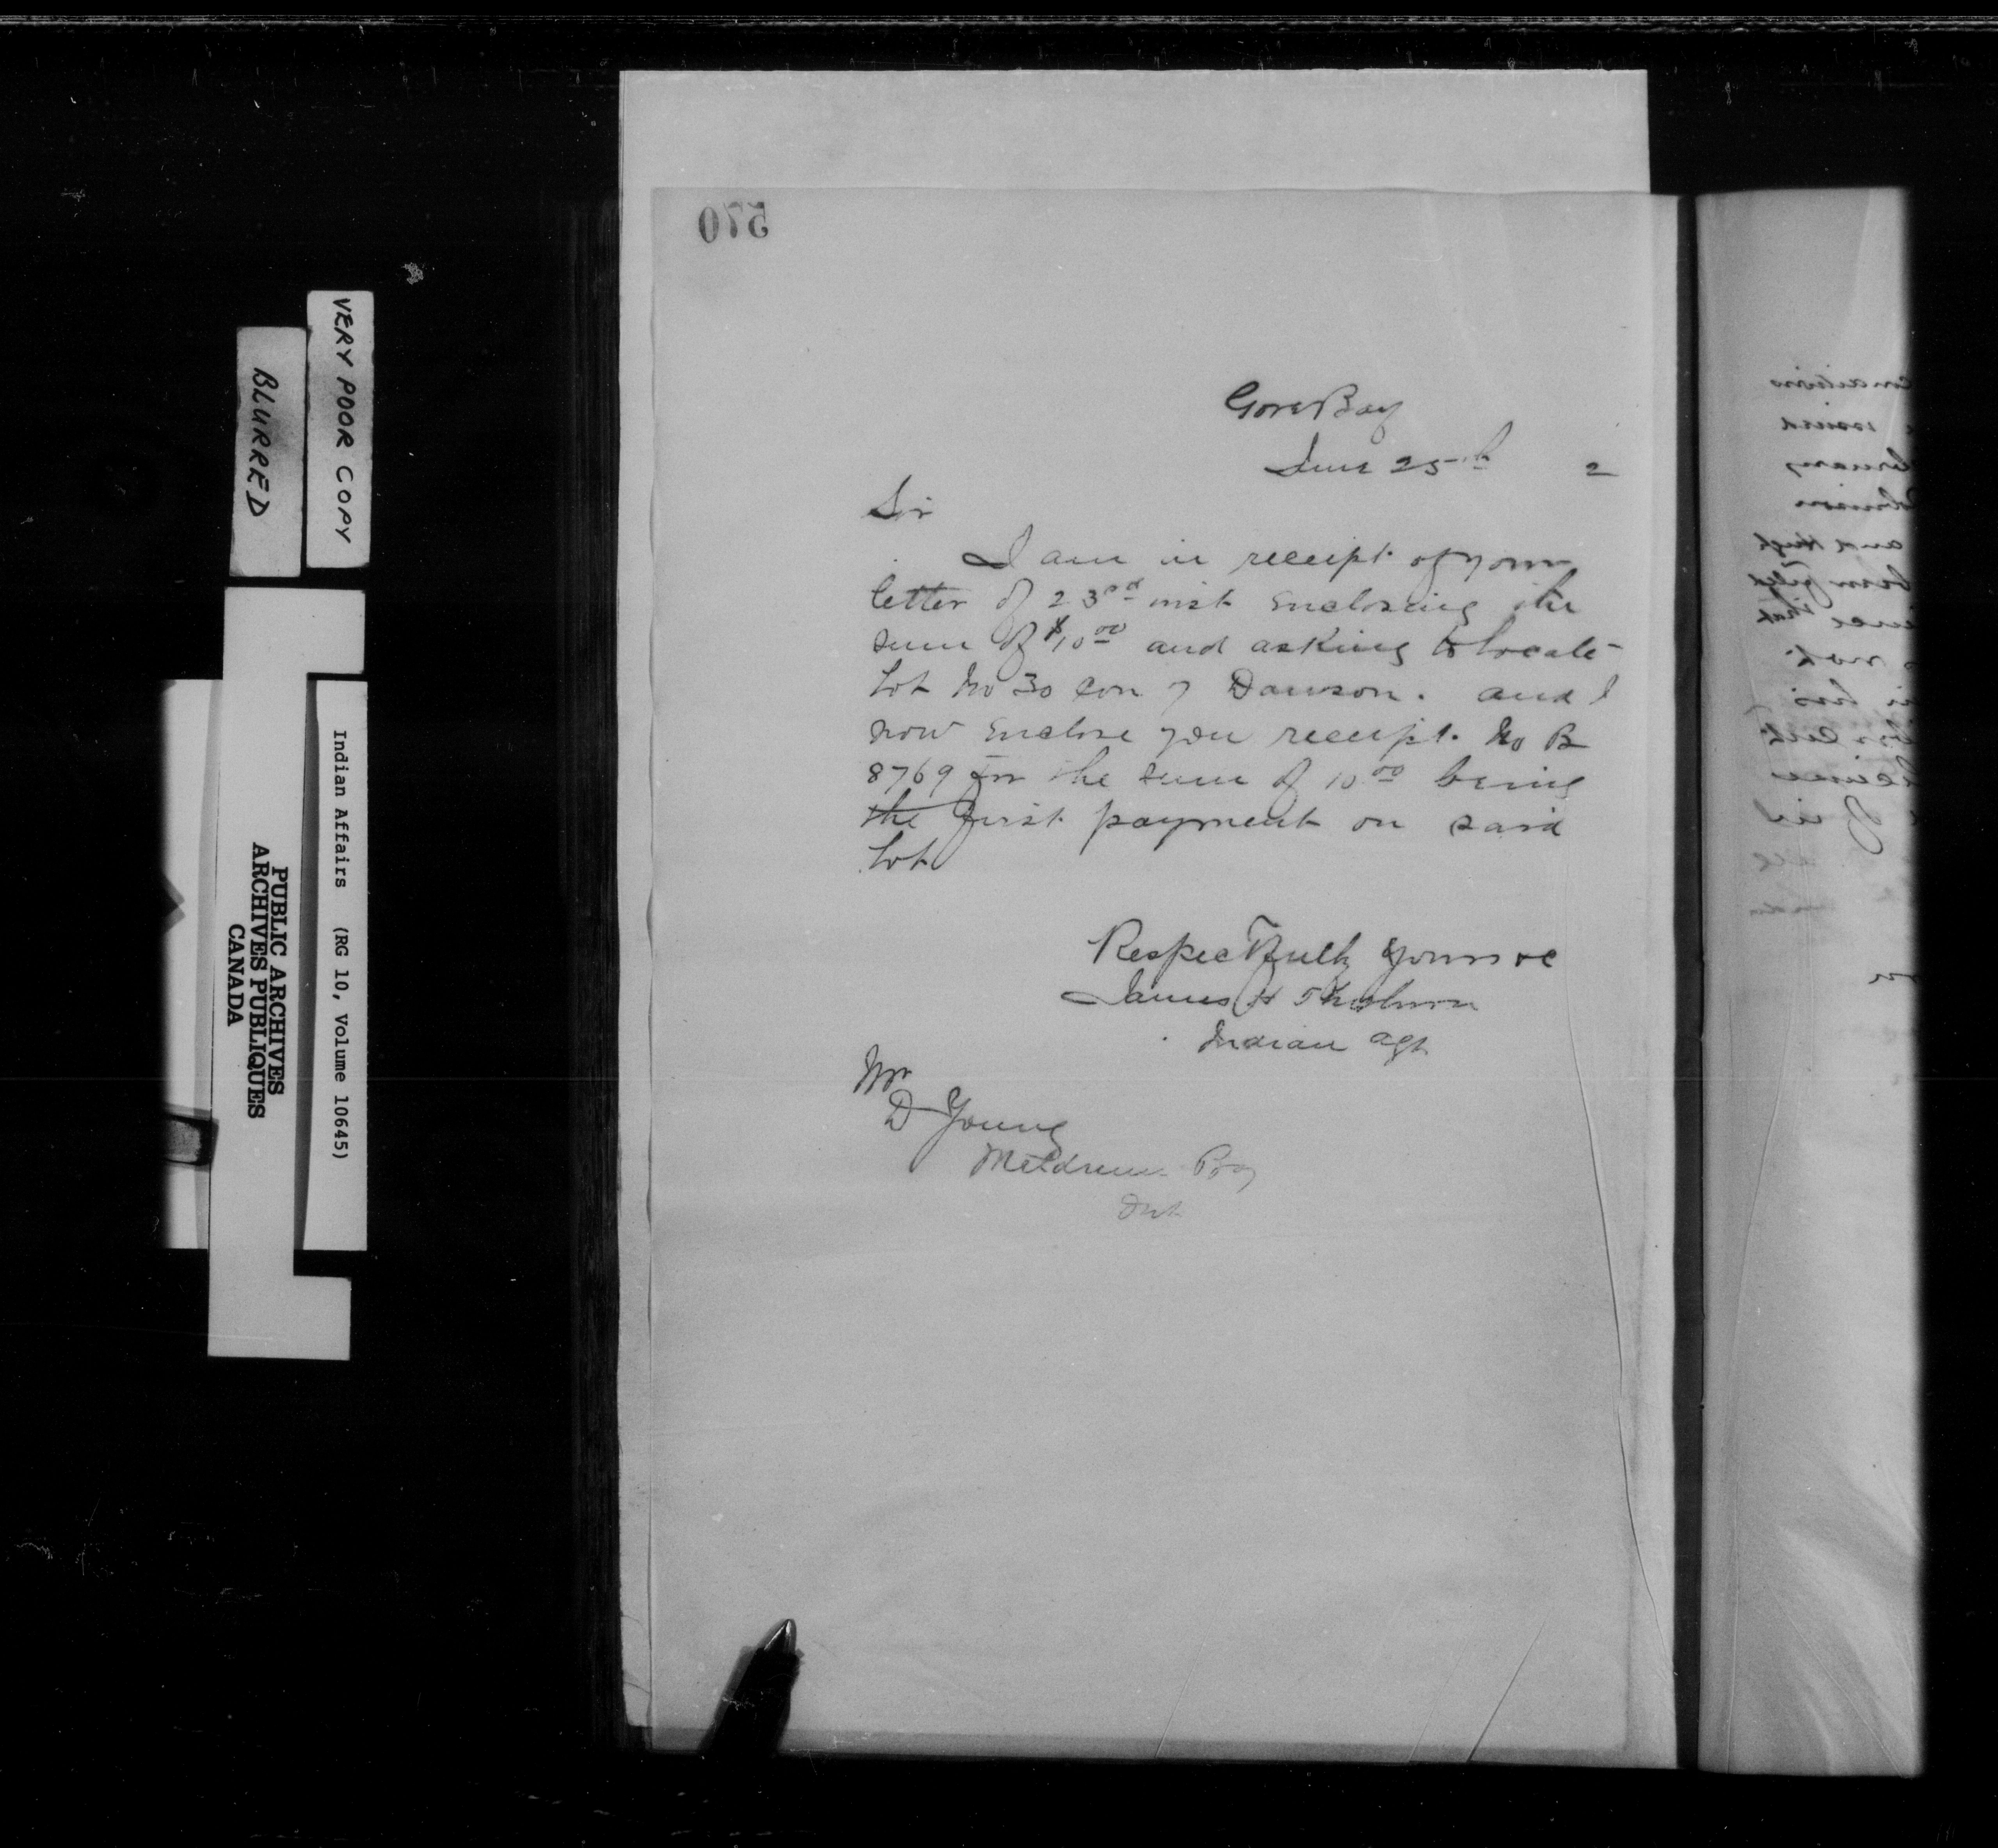 VERY POOR COPY
BLURRED
Indian Affairs (RG 10, Volume 10645)
PUBLIC ARCHIVES
ARCHIVES PUBLIQUES
CANADA
570
Gore Bay
June 25th 2
Sir
I am in receipt of your
letter of 23rd inst enclosing the
sum of $10 00 and asking to locate
Lot No 30 Con 7 Dawson. and I
now enclose you receipt No B
8769 for the sum of 10 00 being
the first payment on said
Lot
Respectfully yours &c
James H Thorburn
Indian Agt
Mr
D Young
Meldrum Bay
Ont